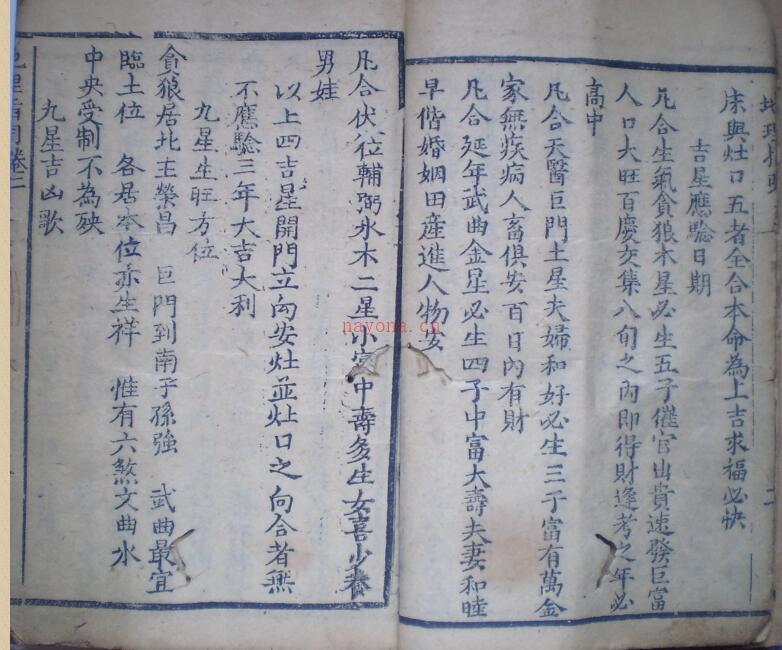 床與灶口五者全合本命為上吉求福必快
吉星應驗日期
凡合生氣貪狼木星必生五子催官出貴速發巨富
人口大旺百慶交集八旬之內即得財逢考之年必
高中
凡合天醫巨門土星夫婦和好必生三子富有萬金
家無疾病人畜俱安百日內有財
凡合延年武曲金星必生四子中富大壽夫妻和睦
早偕婚姻田産進人物安
凡合伏位輔弼水木二星小富中壽多生女喜少養
男娃
以上四吉星開門立向安灶並灶口之向合者無
不應驗三年大吉大利
九星生旺方位
貪狼居北主榮昌 巨門到南子孫強 武曲最宜
臨土位 各居本位亦生祥 惟有六煞文曲水
中央受制不為殃
九星吉凶歌
卷二
nayona.cn